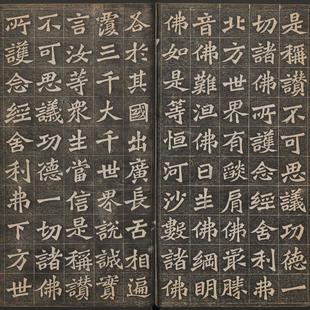 是稱讚不可思議功德一
切諸佛所護念經舍利弗
北方世界有燄肩佛最勝
音佛難沮佛日生佛網明
佛如是等恒河沙數諸佛
各於其國出廣長舌相遍
覆三千大千世界說誠實
言汝等衆生當信是稱讚
不可思議功德一切諸佛
所護念經舍利弗下方世